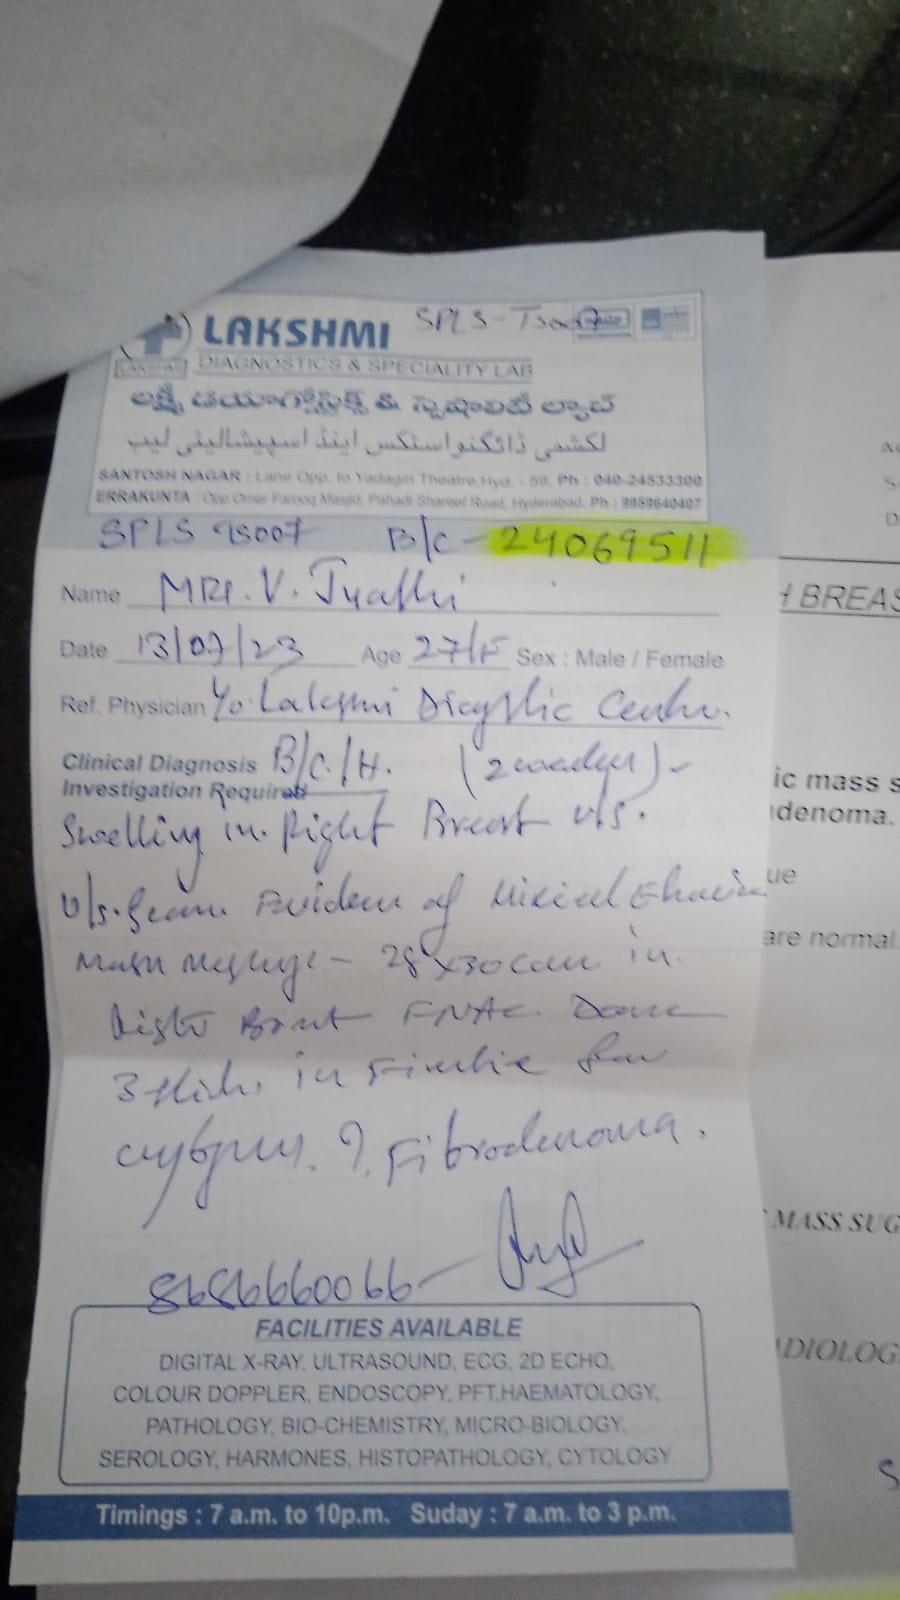 LAKSHMI SPLS-TS007
LAKSHMI DIAGNOSTICS & SPECIALITY LAB
లక్ష్మి డయాగ్నోస్టిక్స్ & స్పెషాలిటీ ల్యాబ్
لکشمی ڈائگنواسٹکس اینڈ اسپیشالیٹی لیب
SANTOSH NAGAR : Lane Opp. to Yadagiri Theatre, Hyd. - 59, Ph : 040-24533300
ERRAKUNTA : Opp. Omer Farooq Masjid, Pahadi Shareef Road, Hyderabad, Ph : 9959640407
SPLS TS007 B/C - 24069511
Name V. Jyothi
Date 13/07/23 Age 27/F Sex : Male / Female
Ref. Physician Lakshmi Centre.
Clinical Diagnosis B/C/H.
Investigation Required
Swelling in Right Breast U/S.
U/S. Scan. Evidence of
in
Breast FNAC Done
3 in for
? Fibrodenoma.
8686660066
FACILITIES AVAILABLE
DIGITAL X-RAY, ULTRASOUND, ECG, 2D ECHO,
COLOUR DOPPLER, ENDOSCOPY, PFT,HAEMATOLOGY,
PATHOLOGY, BIO-CHEMISTRY, MICRO-BIOLOGY,
SEROLOGY, HARMONES, HISTOPATHOLOGY, CYTOLOGY
Timings : 7 a.m. to 10p.m. Suday : 7 a.m. to 3 p.m.
H BREAS
ic mass s
denoma.
ue
are normal.
MASS SUG
DIOLOG